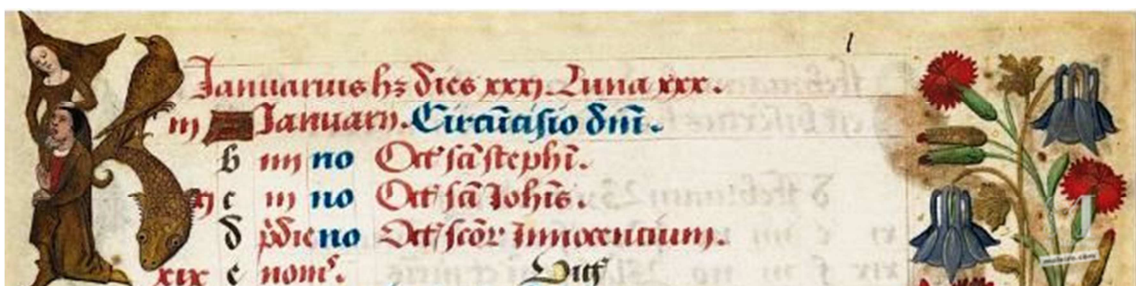 l
Januarius hz dies xxxj Luna xxx.
KL
iij A Januarij. Circūcisio dnī.
b iiij no Oct̄ scī stephī.
xj c iij no Oct̄ scī Johīs.
d p̄die no Oct̄ scōr̄ Innocentium.
xix e nonę.
moleiro.com